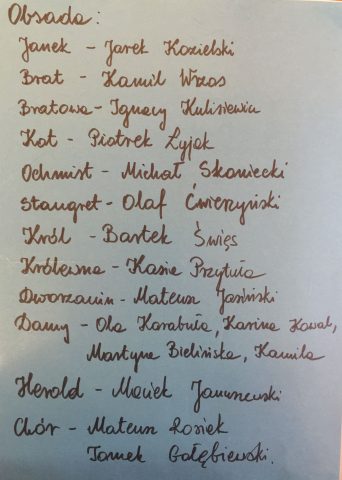 Obsada:
Janek - Jarek Kozielski
Brat - Kamil Wrzos
Bratowa - Ignacy Kulisiewicz
Kot - Piotrek Zyjek
Ochmist - Michał Skaniecki
Stangret - Olaf Ćwierzyński
Król - Bartek Święs
Królewna - Kasia Przytuła
Dworzanin - Mateusz Jasiński
Damy - Ola Karabuła, Karina Kowal,
Martyna Bielińska, Kamila
Herold - Maciek Januszewski
Chór - Mateusz Łosiek
Tomek Gołębiewski.